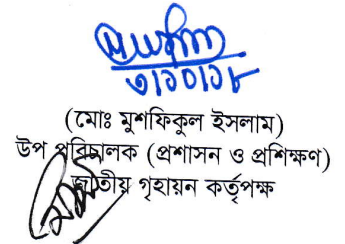 ৩১০১৮
(মোঃ মুশফিকুল ইসলাম)
উপ পরিচালক (প্রশাসন ও প্রশিক্ষণ)
জাতীয় গৃহায়ন কর্তৃপক্ষ